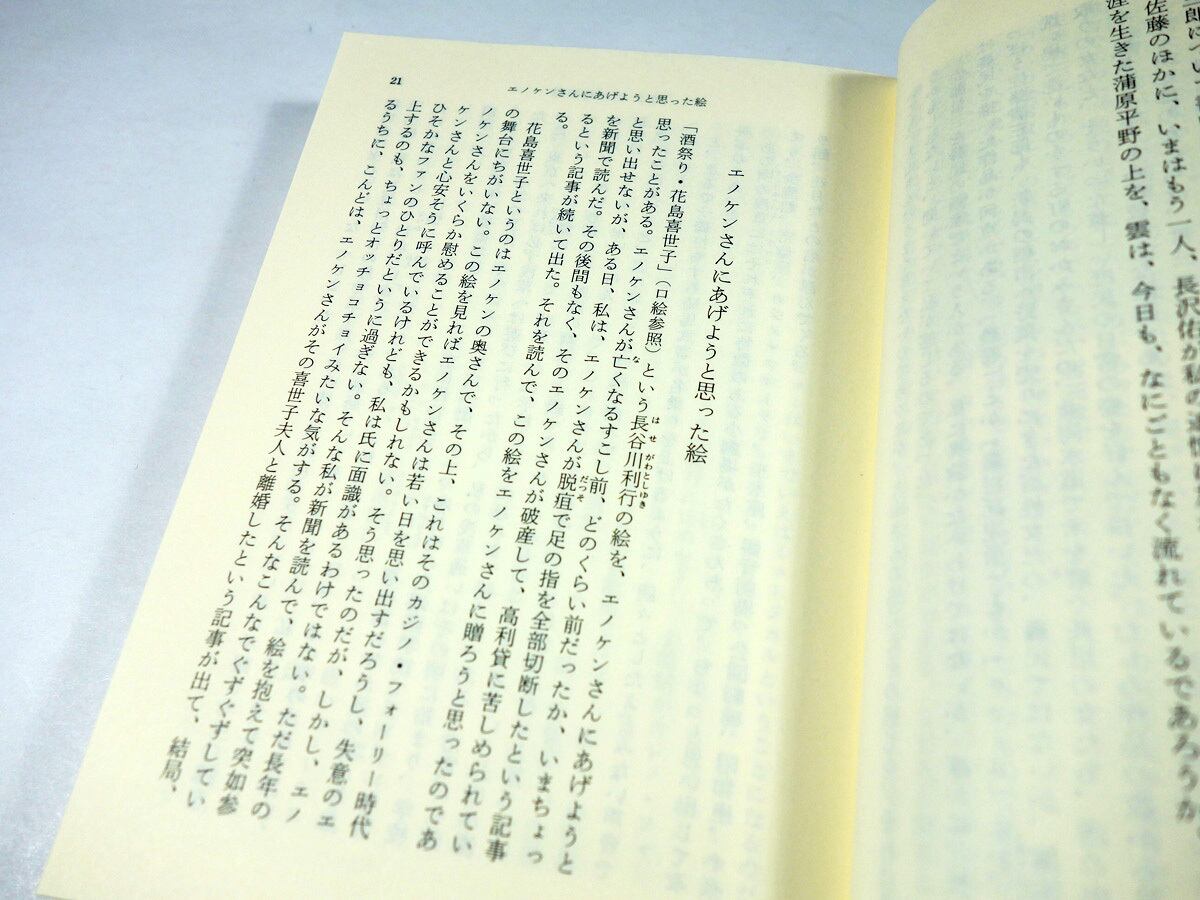 佐藤のほかに、いまはもう一人、長沢佑が私の追憶
涯を生きた蒲原平野の上を、雲は、今日も、なにごともなく流れているであろうか
21
エノケンさんにあげようと思った絵
エノケンさんにあげようと思った絵
「酒祭り・花島喜世子」（口絵参照）という長谷川利行の絵を、エノケンさんにあげようと
はせがわとしゆき
思ったことがある。エノケンさんが亡くなるすこし前、どのくらい前だったか、いまちょっ
な
と思い出せないが、ある日、私は、エノケンさんが脱疽で足の指を全部切断したという記事
だっそ
を新聞で読んだ。その後間もなく、そのエノケンさんが破産して、高利貸に苦しめられてい
るという記事が続いて出た。それを読んで、この絵をエノケンさんに贈ろうと思ったのであ
る。
花島喜世子というのはエノケンの奥さんで、その上、これはそのカジノ・フォーリー時代
の舞台にちがいない。この絵を見ればエノケンさんは若い日を思い出すだろうし、失意のエ
ノケンさんをいくらか慰めることができるかもしれない。そう思ったのだが、しかし、エノ
ケンさんと心安そうに呼んでいるけれども、私は氏に面識があるわけではない。ただ長年の
ひそかなファンのひとりだというに過ぎない。そんな私が新聞を読んで、絵を抱えて突如参
上するのも、ちょっとオッチョコチョイみたいな気がする。そんなこんなでぐずぐずしてい
るうちに、こんどは、エノケンさんがその喜世子夫人と離婚したという記事が出て、結局、